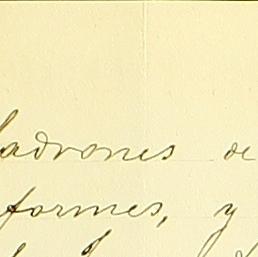 ladrones de
formes, y